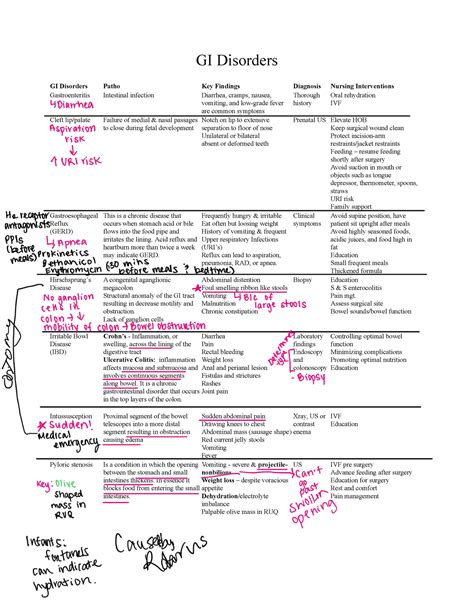 GI Disorders
GI Disorders Patho Key Findings Diagnosis Nursing Interventions
Gastroenteritis Intestinal infection Diarrhea, cramps, nausea, Thorough Oral rehydration
↳Diarrhea vomiting, and low-grade fever history IVF
are common symptoms
Cleft lip/palate Failure of medial & nasal passages Notch on lip to extensive Prenatal US Elevate HOB
Aspiration to close during fetal development separation to floor of nose Keep surgical wound clean
risk Unilateral or bilateral Protect incision-arm
absent or deformed teeth restraints/jacket restraints
↳ ↑ URI risk Feeding – resume feeding
shortly after surgery
Avoid suction in mouth or
objects such as tongue
depressor, thermometer, spoons,
straws
URI risk
Family support
H2 receptor Gastroesophageal This is a chronic disease that Frequently hungry & irritable Clinical Avoid supine position, have
antagonists Reflux occurs when stomach acid or bile Eat often but loosing weight symptoms patient sit upright after meals
PPIs (GERD) flows into the food pipe and History of vomiting & frequent Avoid highly seasoned foods,
(before meals) ↳Apnea irritates the lining. Acid reflux and Upper respiratory Infections acidic juices, and food high in
heartburn more than twice a week (URI's) fat
Prokinetics may indicate GERD. Refusal can determine irritation, Education
Bethanicol pneumonia, RAD, or apnea. Small frequent meals
Erythromycin (30 mins before meals & bedtime) Thickened formula
Hirschsprung's A congenital aganglionic Abdominal distention Biopsy Education
Disease megacolon ★Foul smelling ribbon like stools S & S enterocolitis
No ganglion Structural anomaly of the GI tract Vomiting ↳B/c of Pain mgt.
cells in resulting in decrease motility and Malnutrition large stools Assess surgical site
colon → ↓ obstruction. Chronic constipation Bowel sounds/bowel function
Lack of ganglion cells
mobility of colon → Bowel obstruction
Irritable Bowel Crohn's - Inflammation, or Diarrhea Laboratory Controlling optimal bowel
Disease swelling, across the lining of the Pain findings function
(IBD) digestive tract Rectal bleeding Endoscopy Minimizing complications
Ulcerative Colitis: inflammation Weight loss and Promoting optimal nutrition
affects mucosa and submucosa and Anal and perianal lesion colonoscopy Education
involves continuous segments Fistulas and strictures - Biopsy
along bowel. It is a chronic Rashes
gastrointestinal disorder that occurs Joint pain
in the top layers of the colon.
Intussusception Proximal segment of the bowel Sudden abdominal pain Xray, US or IVF
★Sudden! telescopes into a more distal Drawing knees to chest contrast Education
Medical segment resulting in obstruction Abdominal mass (sausage shape) enema
emergency causing edema Red current jelly stools
Vomiting
Fever
Pyloric stenosis Is a condition in which the opening Vomiting - severe & projectile- US IVF pre surgery
between the stomach and small nonbilious Can't Advance feeding after surgery
Key: Olive intestines thickens. In essence it Weight loss – despite voracious go Education for surgery
shaped blocks food from entering the small appetite past Rest and comfort
mass in intestines. Dehydration/electrolyte smaller Pain management
RUQ imbalance opening
Palpable olive mass in RUQ
Infants:
fontanels
can indicate
hydration.